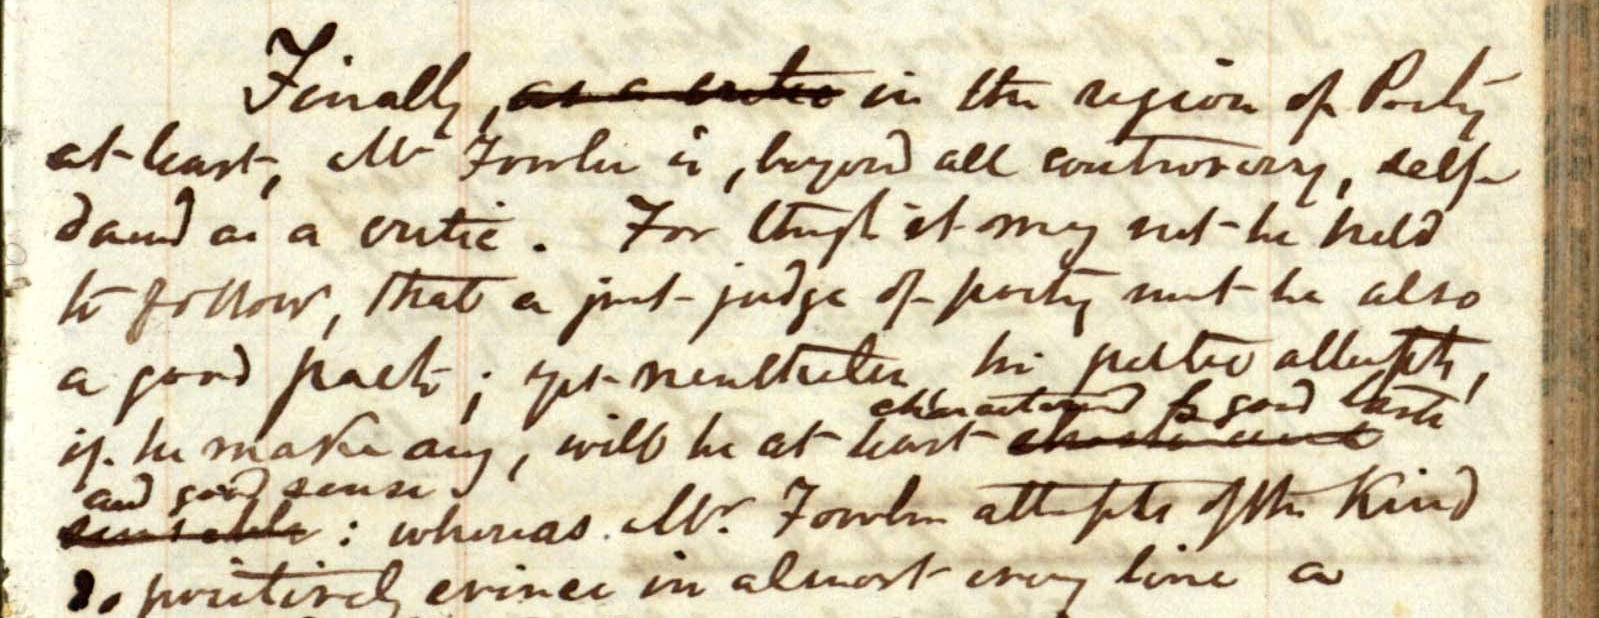 Finally, as a critic in the region of Poetry
at least, Mr Fowler is, beyond all controversy, self-
damd as a critic. For though it may not be held
to follow, that a just judge of poetry must be also
a good poet; yet nevertheless his poetic attempts,
characterized by good taste
if he make any, will be at least chaste and
and good sense
sensible: whereas Mr. Fowler attempts of the kind
do positively evince in almost every line a